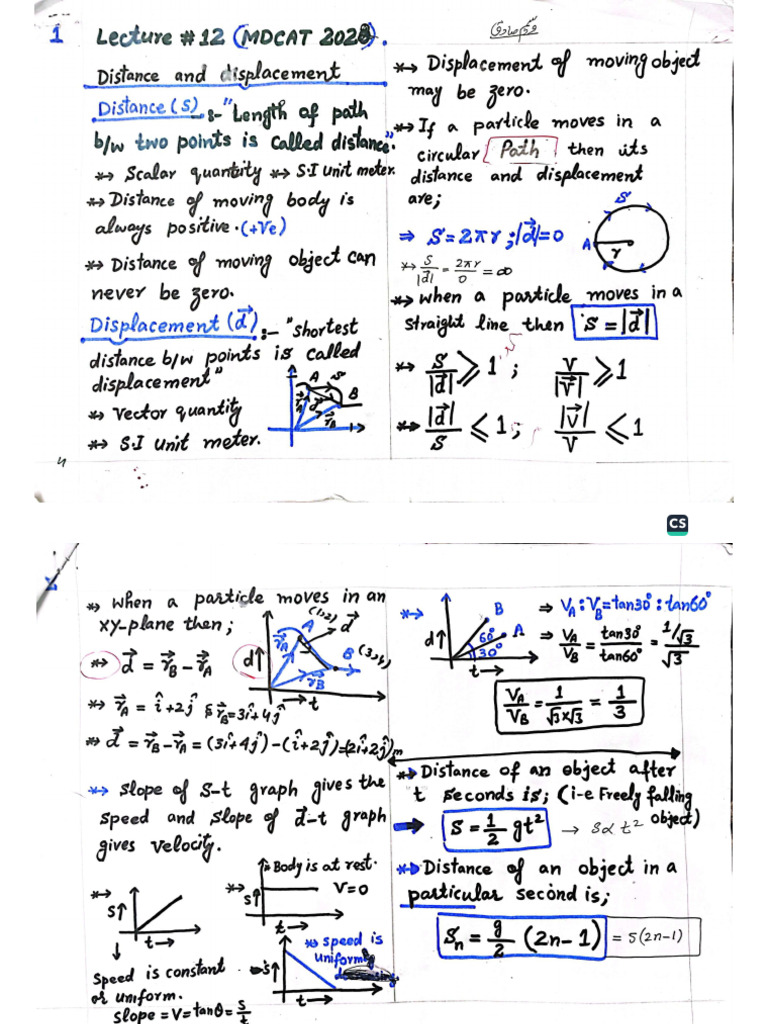 1 Lecture #12 (MDCAT 2028).
Distance and displacement
Distance (S) :- "Length of path
b/w two points is called distance."
*→ Scalar quantity *→ S.I unit meter.
*→ Distance of moving body is
always positive. (+ve)
*→ Distance of moving object can
never be zero.
Displacement (d⃗) :- "shortest
distance b/w points is called
displacement"
*→ Vector quantity
*→ S.I unit meter.
A S B
r⃗A d⃗ r⃗B
*→ Displacement of moving object
may be zero.
*→ If a particle moves in a
circular Path then its
distance and displacement
are;
⇒ S = 2πr ; |d⃗| = 0
S
A r
*→ S/|d⃗| = 2πr/0 = ∞
*→ when a particle moves in a
straight line then S = |d⃗|
*→ S/|d⃗| ⩾ 1 ; V/|V⃗| ⩾ 1
*→ |d⃗|/S ⩽ 1 ; |V⃗|/V ⩽ 1
CS
*→ when a particle moves in an
xy-plane then;
*→ d⃗ = r⃗B - r⃗A
*→ r⃗A = î+2ĵ & r⃗B = 3î+4ĵ
*→ d⃗ = r⃗B - r⃗A = (3î+4ĵ) - (î+2ĵ) = (2î+2ĵ) m
(1,2) A d⃗
r⃗A B (3,4)
d↑ r⃗B
→ t
*→ slope of S-t graph gives the
speed and slope of d⃗-t graph
gives velocity.
*→ S↑
t→
↓
Speed is constant
or uniform.
slope = V = tanθ = S/t
*→ Body is at rest.
S↑ V=0
t→
S↑ *→ speed is
uniform
t→
*→ B
d↑ 60° A
30°
t→
⇒ VA : VB = tan30° : tan60°
⇒ VA/VB = tan30°/tan60° = 1/√3/√3
VA/VB = 1/√3×√3 = 1/3
*→ Distance of an object after
t seconds is; (i-e Freely falling
object)
→ S = 1/2 gt² → S∝t²
*→ Distance of an object in a
particular second is;
Sn = g/2 (2n-1) = 5(2n-1)